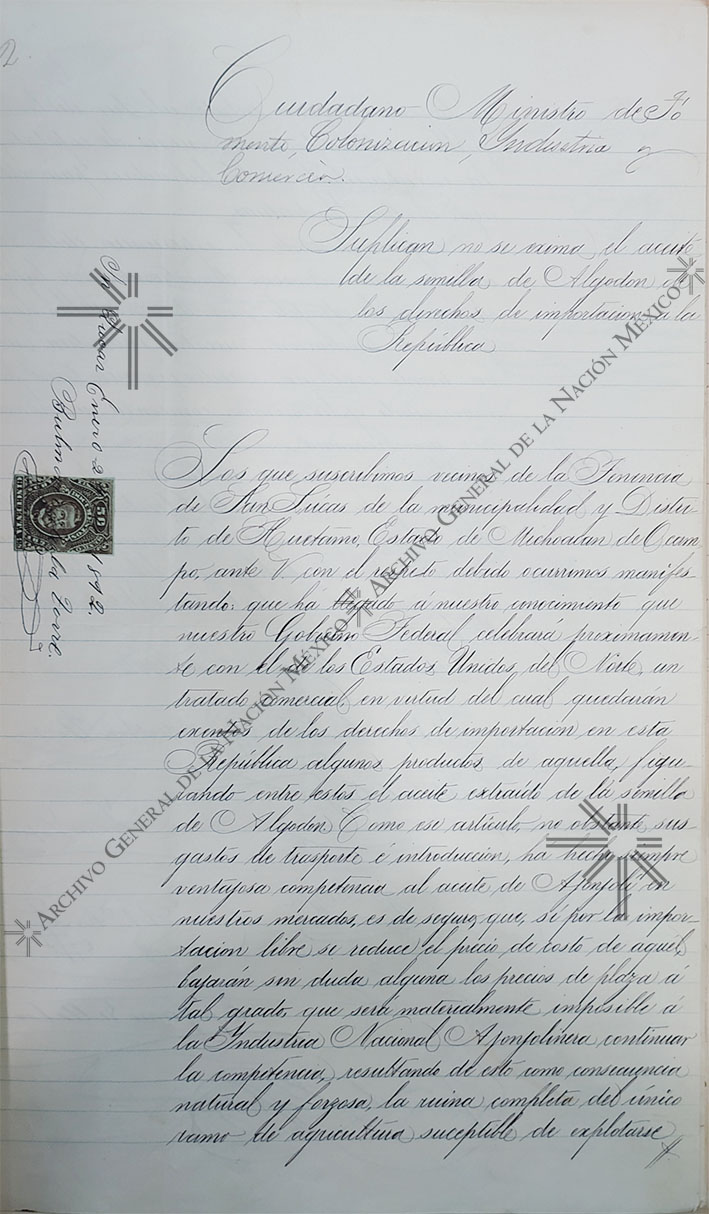 2.
Ciudadano Ministro de Fo
mento, Colonizacion, Industria y
Comercio.
Suplican no se exima el aceite
de la semilla de Algodon de
los derechos de importacion a la
República
San Lucar Enero 2 1892.
de la Torre.
50
Los que suscribimos vecinos de la Tenencia
de San Lúcas de la municipalidad y Distri-
to de Huetamo, Estado de Michoacan de Ocam-
po, ante V. con el respeto debido ocurrimos manifes-
tando: que há llegado á nuestro conocimiento que
nuestro Gobierno Federal celebrará proximamen-
te con el de los Estados Unidos del Norte, un
tratado comercial, en virtud del cual quedarán
exentos de los derechos de importacion en esta
República algunos productos de aquella, figu-
rando entre estos el aceite extraido de la semilla
de Algodon. Como ese articulo, no obstante sus
gastos de trasporte é introduccion, ha hecho siempre
ventajosa competencia al aceite de Ajonjolí en
nuestros mercados, es de seguro, que, si por la impor-
tacion libre se reduce el precio de costo de aquel,
bajarán sin duda alguna los precios de plaza á
tal grado que será materialmente imposible á
la Industria Nacional Ajonjolinera continuar
la competencia, resultando de esto como consecuencia
natural y forzosa, la ruina completa del único
ramo de agricultura suceptible de explotarse
Archivo General de la Nación México
Archivo General de la Nación México